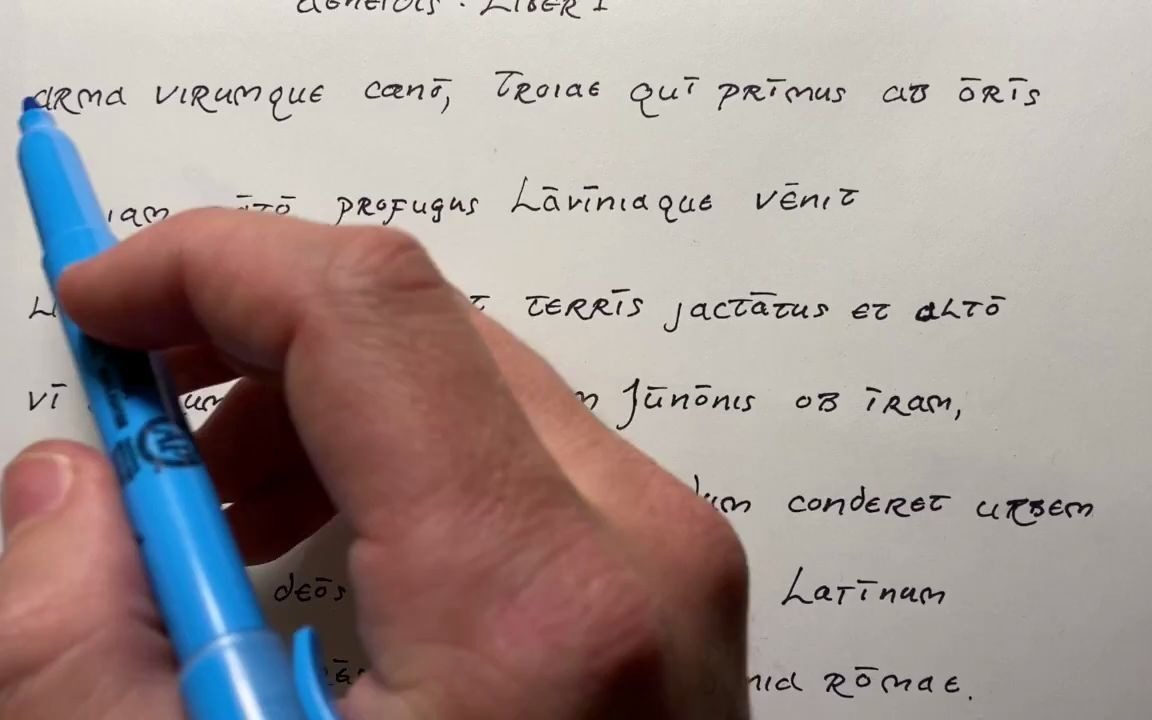 Aeneidis · Liber I
arma virumque canō, Troiae quī prīmus ab ōrīs
profugus Lāvīniaque vēnit
terrīs jactātus et altō
vī Jūnōnis ob īram,
conderet urbem
deōs Latīnum
Rōmae.